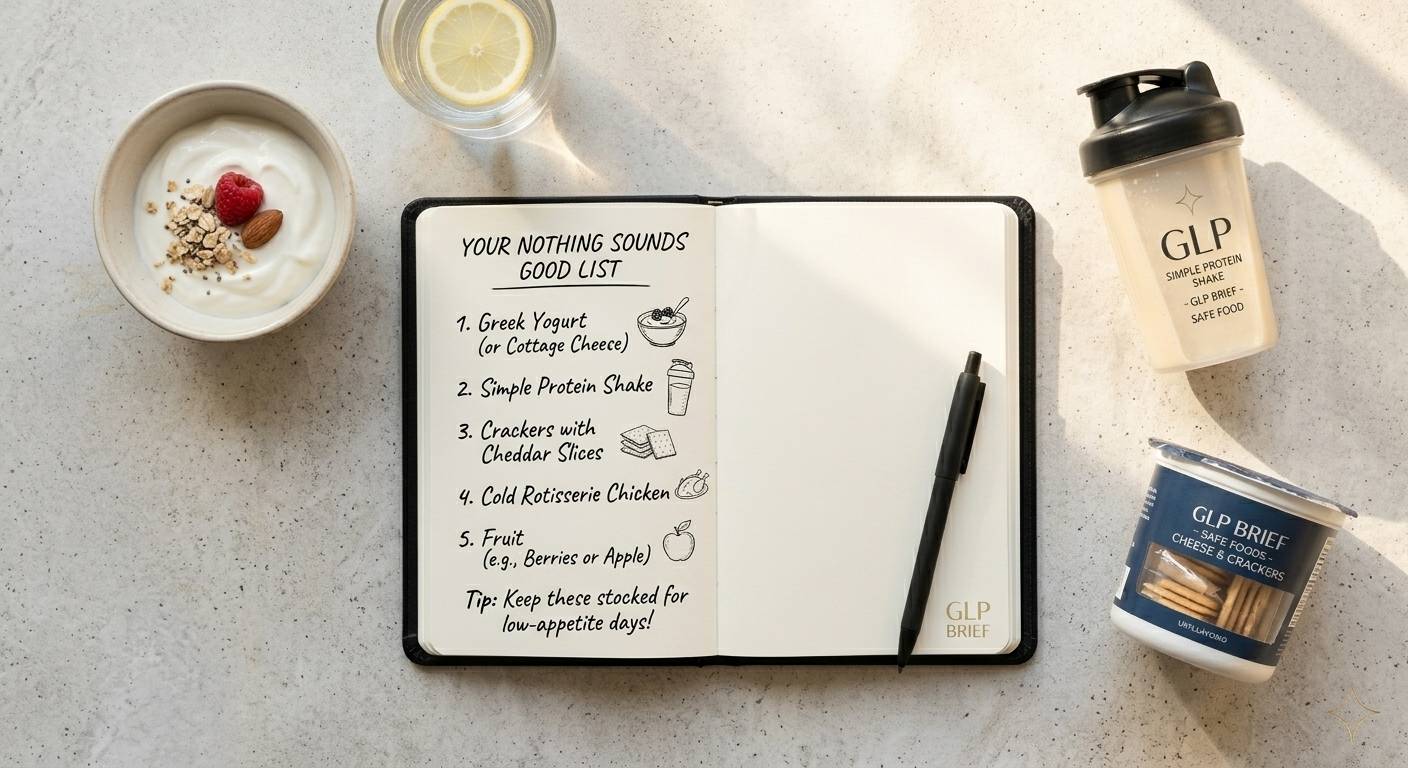 YOUR NOTHING SOUNDS
GOOD LIST
1. Greek Yogurt
(or Cottage Cheece)
2. Simple Protein Shake
3. Crackers with
Cheddar Slices
4. Cold Rotisserie Chicken
5. Fruit
(e.g., Berries or Apple)
Tip: Keep these stocked for
low-appetite days!
GLP
BRIEF
GLP
SIMPLE PROTEIN
SHAKE
- GLP BRIEF -
SAFE FOOD
GLP BRIEF
- SAFE FOODS -
CHEESE & CRACKERS